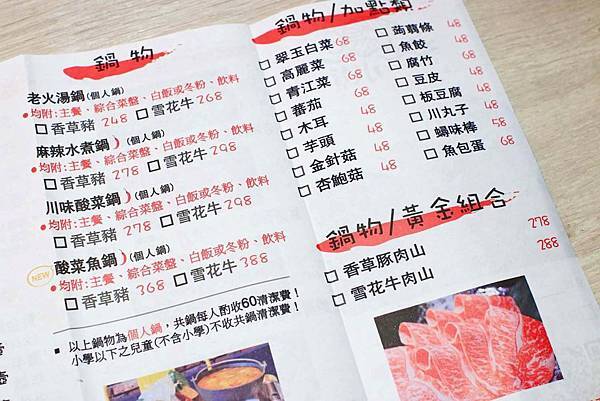 鍋物
老火湯鍋(個人鍋)
•均附:主餐、綜合菜盤、白飯或冬粉、飲料
□香草豬 248 □雪花牛 268
麻辣水煮鍋 (個人鍋)
•均附:主餐、綜合菜盤、白飯或冬粉、飲料
□香草豬 278 □雪花牛 298
川味酸菜鍋 (個人鍋)
•均附:主餐、綜合菜盤、白飯或冬粉、飲料
□香草豬 278 □雪花牛 298
NEW
酸菜魚鍋 (個人鍋)
•均附:主餐、綜合菜盤、白飯或冬粉、飲料
□香草豬 368 □雪花牛 388
■ 以上鍋物為個人鍋,共鍋每人酌收60清潔費!
小學以下之兒童(不含小學)不收共鍋清潔費!
鍋物/加點類
□翠玉白菜 68
□高麗菜 68
□青江菜 68
□蕃茄 48
□木耳 48
□芋頭 48
□金針菇 48
□杏鮑菇 48
□蒟蒻條 48
□魚餃 48
□腐竹 68
□豆皮 48
□板豆腐 48
□川丸子 48
□蟳味棒 58
□魚包蛋 68
鍋物/黃金組合
□香草豚肉山 278
□雪花牛肉山 288